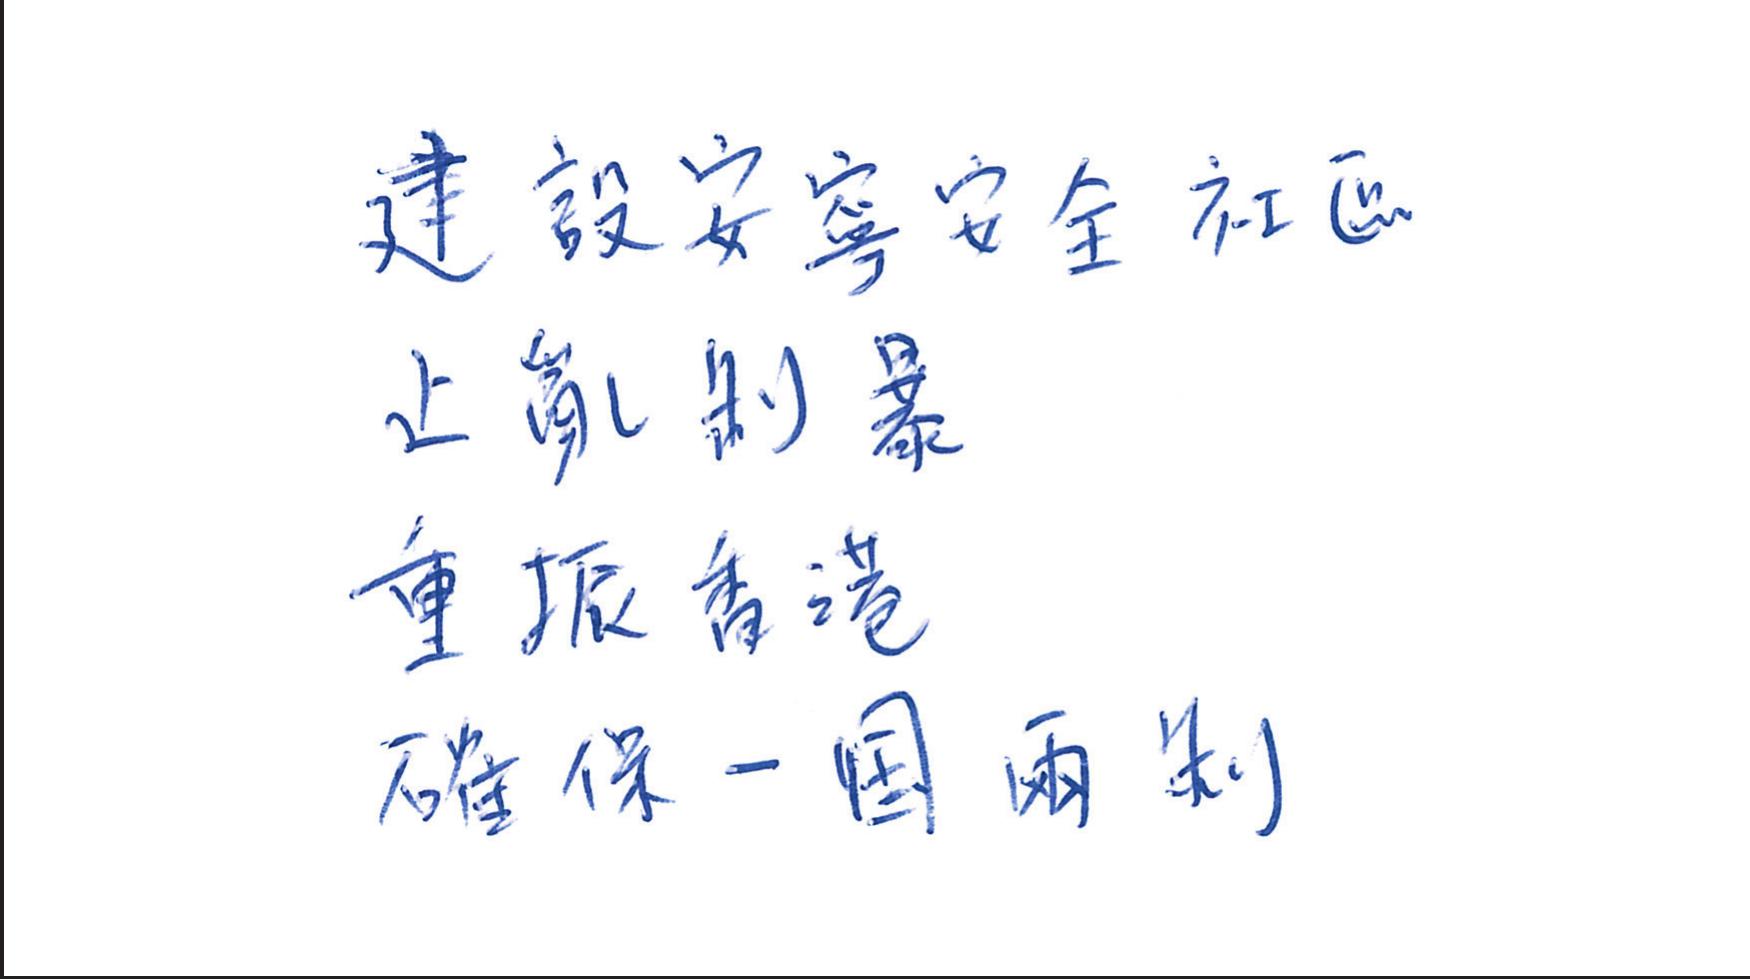 建設安寧安全社區
止亂制暴
重振香港
確保一國兩制